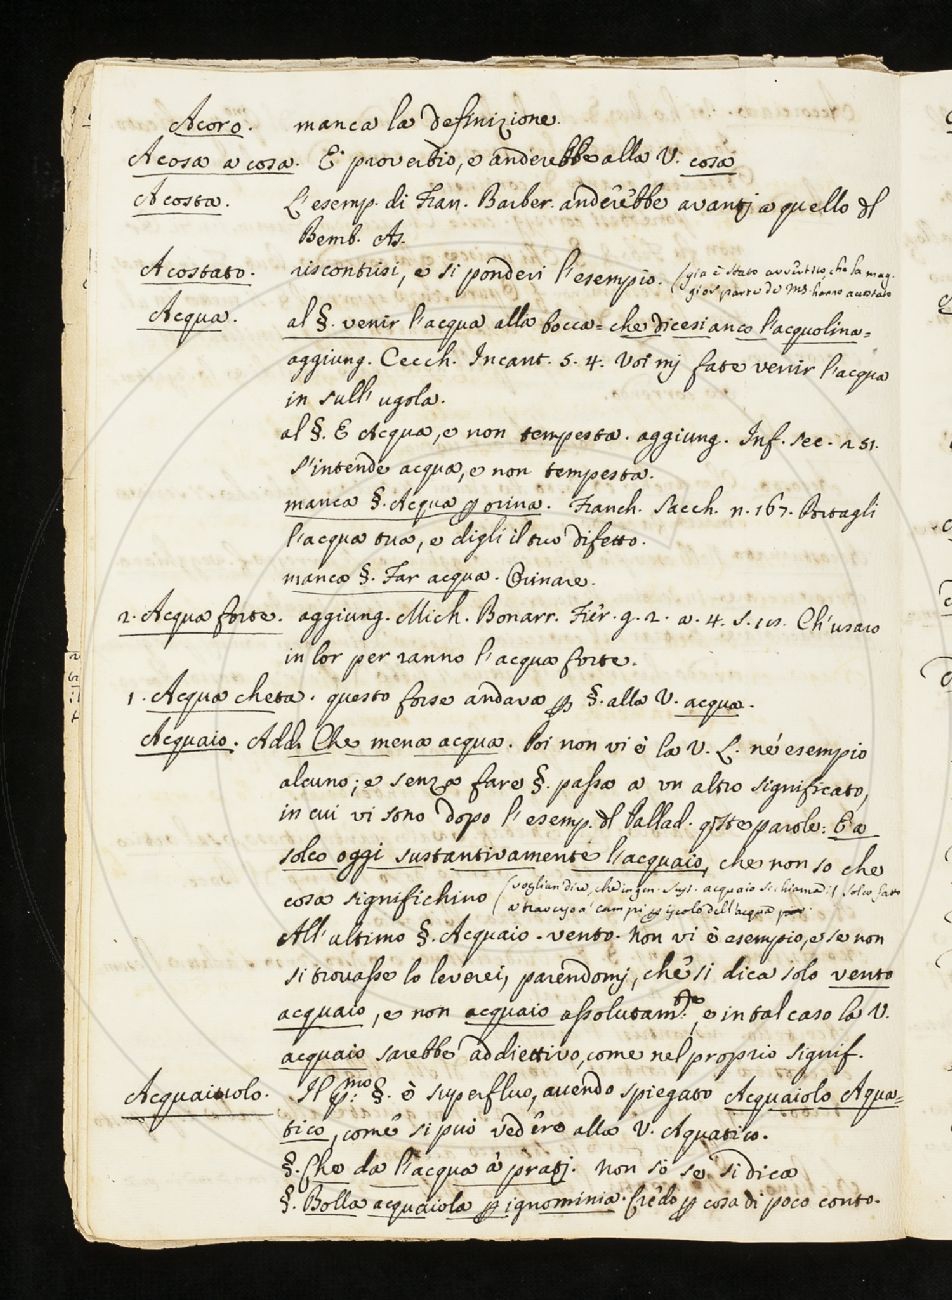 Acoro. manca la definizione.
A cosa a cosa. E' proverbio, e anderebbe alla V. cosa
Acosta. L'esemp. di Fran. Barber. anderebbe avantj a quello dl
Bemb. As.
Acostato. riscontrisi, e si ponderi l'esempio. (già è stato avvertito, che la mag-
gior parte de MS. hanno accostato
Acqua. al §. venir l'acqua alla bocca = che dicesi anco l'acquolina =
aggiung. Cecch. Incant. 5. 4. Voi mj fate venir l'acqua
in sull' ugola.
al §. E Acqua, e non tempesta. aggiung. Inf. sec. 251.
S'intende acqua, e non tempesta.
manca §. Acqua p orina. Franch. Sacch. n. 167. Portagli
l'acqua tua, e digli il tuo difetto.
manca §. Far acqua. Orinare.
2. Acqua forte. aggiung. Mich. Bonarr. Fier. g. 2. a. 4. s. Ch'usaro
in lor per ranno l'acqua forte.
1. Acqua cheta. questo forse andava p §. alla V. acqua.
Acquaio. Add. Che mena acqua. Poi non vi è la V. L. nè esempio
alcuno; e senza fare §. passa a vn altro significato,
in cui vi sono dopo l'esemp. dl Pallad. qste parole: E a
solco oggi sustantivamente l'acquaio, che non so che
cosa significhino (voglian dire, che in gen. sust. acquaio si chiama il solco fatto
a traverso a' campi p iscolo dell'acqua
All'ultimo §. Acquaio - vento. Non vi è esempio, e se non
si trovasse lo leverei, parendomj, che si dica solo vento
acquaio, e non acquaio assolutamte, e in tal caso la V.
acquaio sarebbe addiettivo, come nel proprio signif.
Acquaiuolo. Il pmo §. è superfluo, avendo spiegato Acquaiolo Aqua=
tico, come si può vedere alla V. Aquatico.
§. Che da l'acqua a' pratj. non so se si dica
§. Bolla acquaiola p ignominia. Credo p cosa di poco conto.